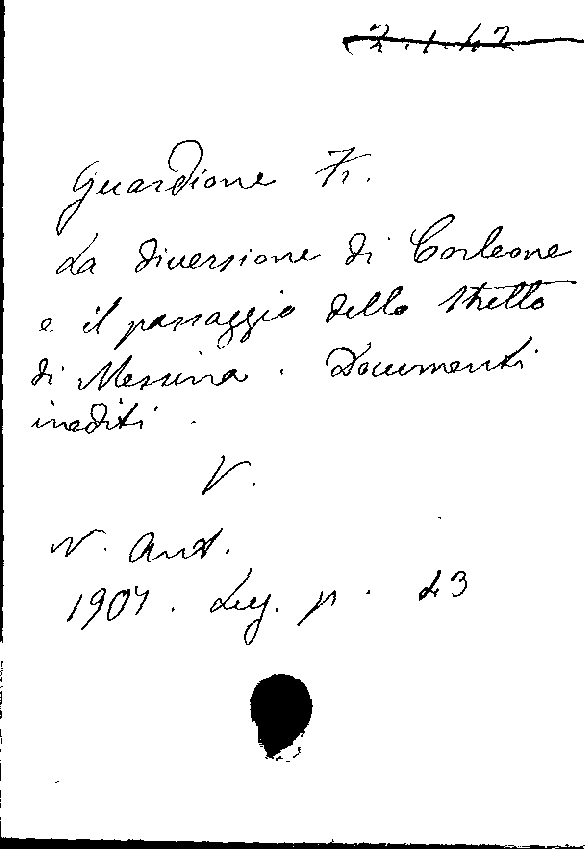 2.1.42
Guardione Fr.
La diversione di Corleone
e il passaggio dello Stretto
di Messina. Documenti
inediti.
V.
N. Ant.
1907. Lug. p. 23